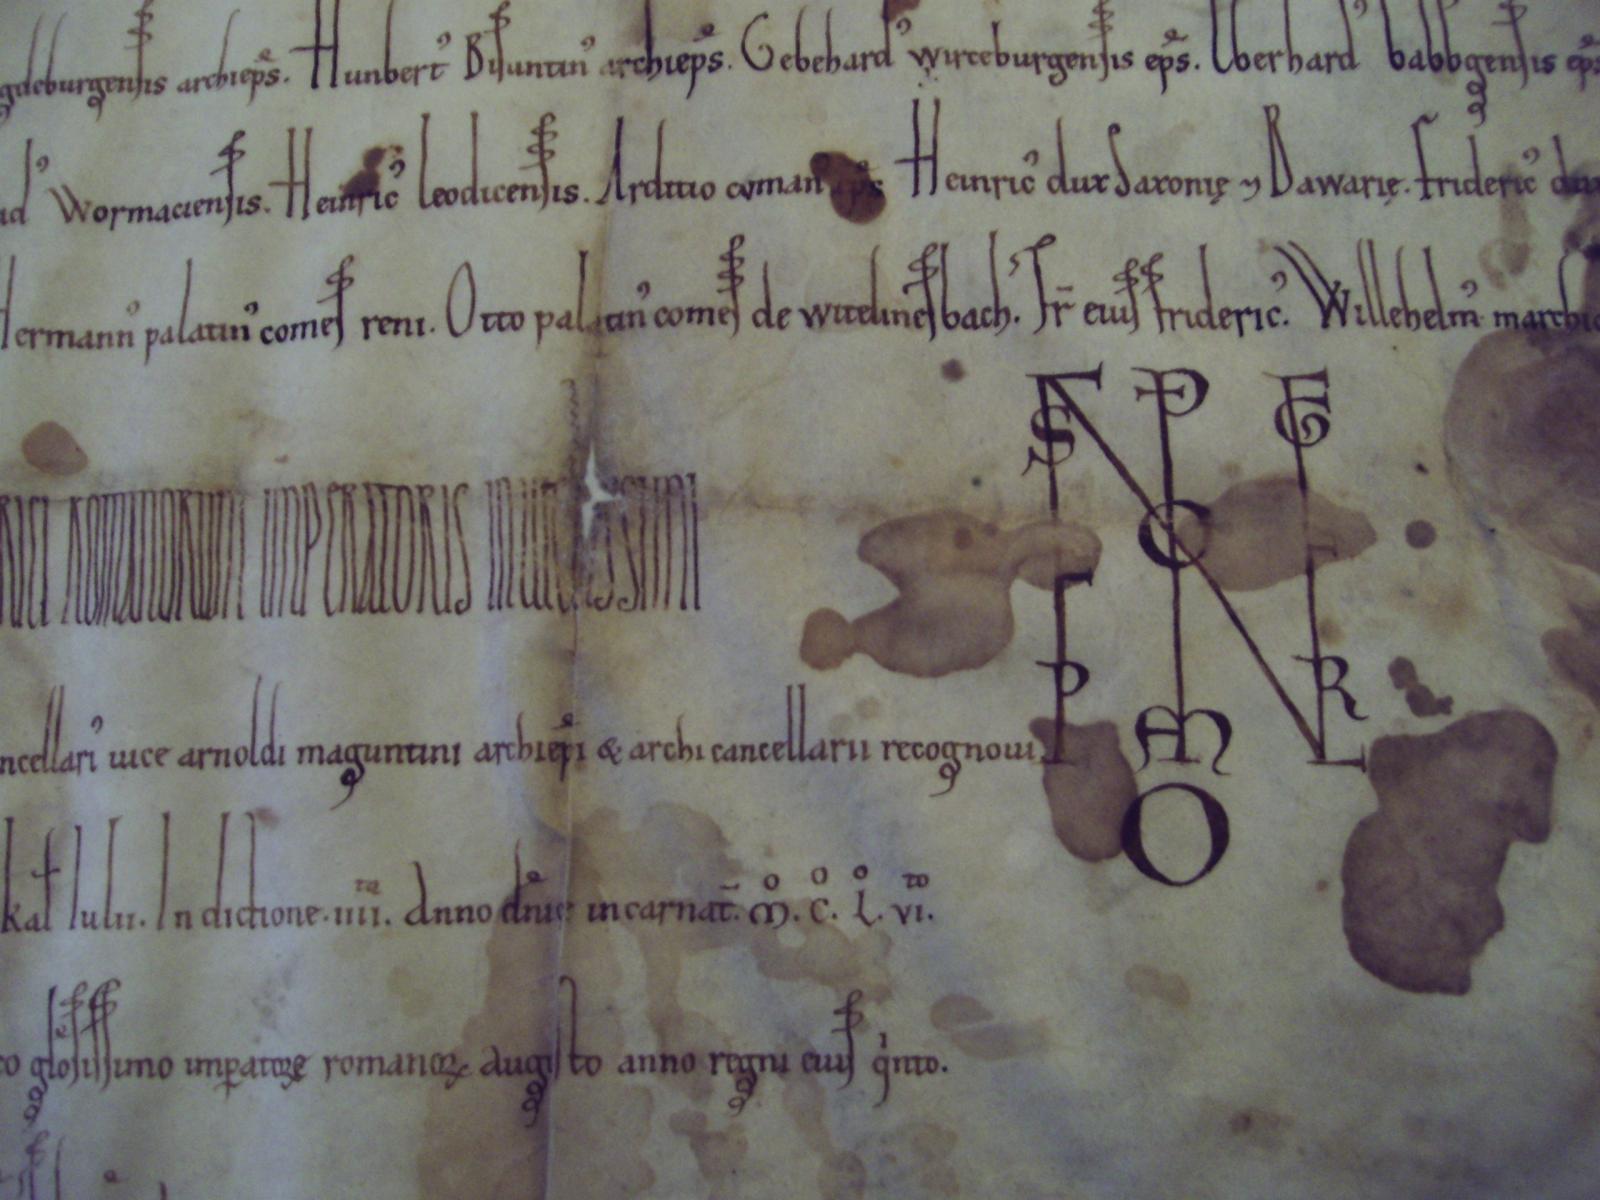 gdeburgensis archiep̃s. Hunbert' Bisuntin' archiep̃s. Gebehard' wirceburgensis ep̃s. Eberhard' babbgensis ep̃s
Wormaciensis. Heinric' leodicensis. Arditio cuman' ep̃s Heinric' dux Saxonię ⁊ Bawarię. Frideric' dux
Hermann' palatin' comes reni. Otto palatin' comes de witelinesbach. Fr̃ eius frideric'. Willehelm' marchio
ROMANORUM IMPERATORIS INUICTISSIMI
ncellari' uice arnoldi maguntini archiep̃i & archicancellarii recognoui
kal̃ Iulii. Indictione .iiii.ᵗᵃ Anno dñice incarnat̃. M̊. C̊. L̊. vi.ᵗᵒ
co gl̃osissimo imꝑatorę romanoꝝ augusto anno regni eius q'nto.
F P E
S G
C
T
P R
M L
O